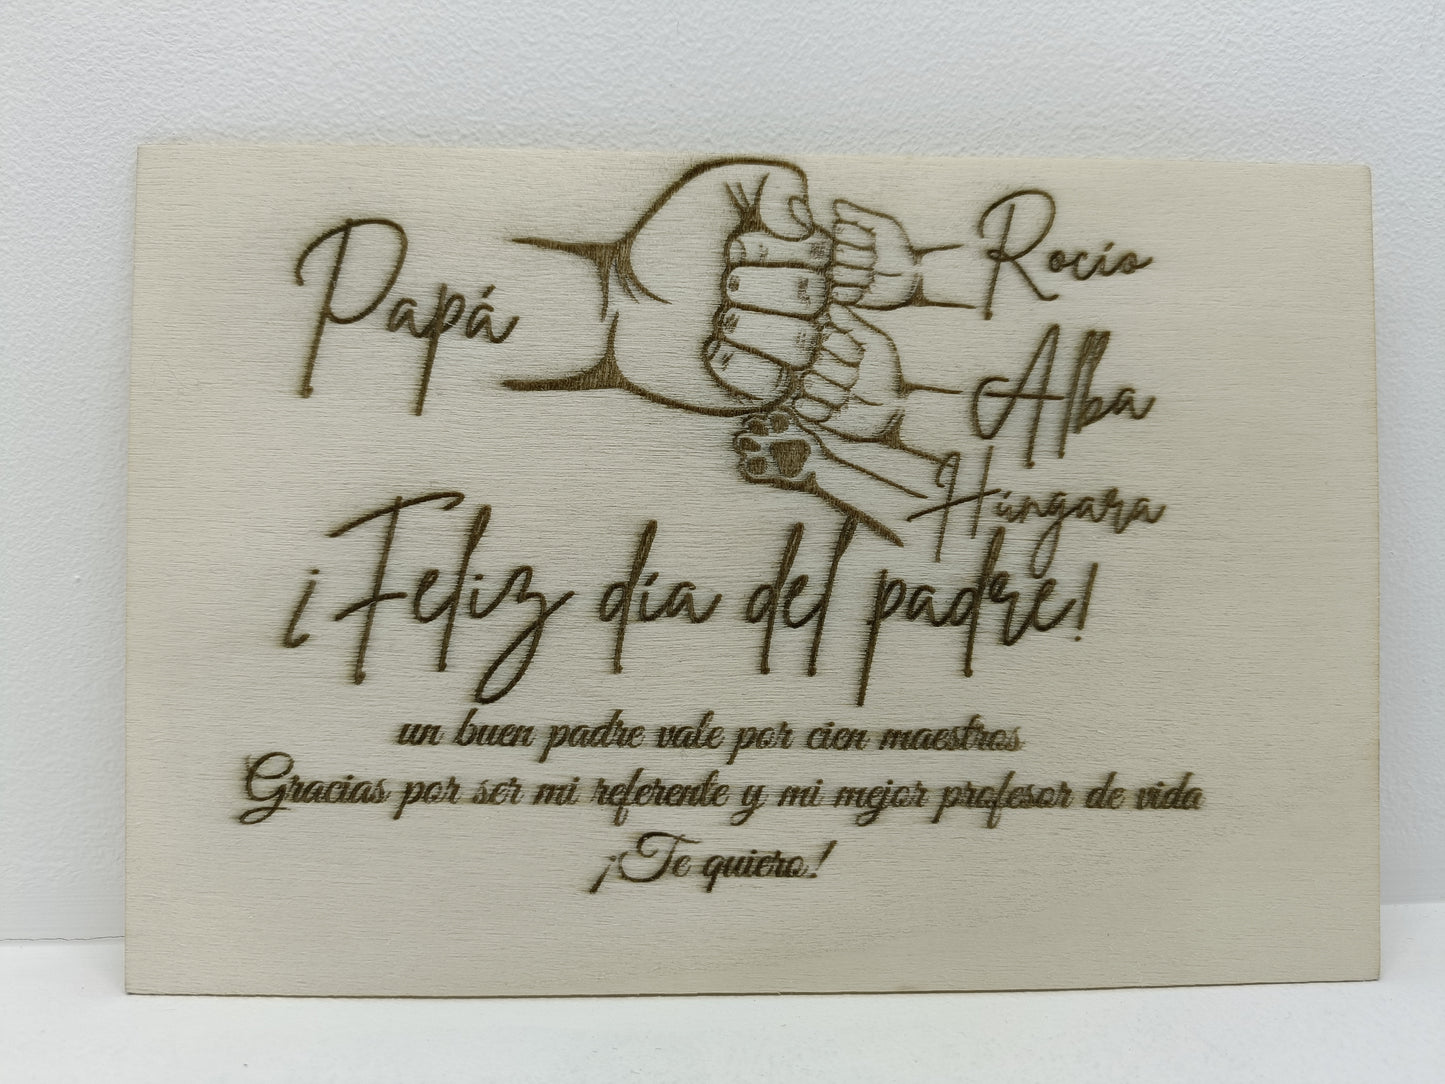 Papá
Rocío
Alba
Húngara
¡Feliz día del padre!
un buen padre vale por cien maestros
Gracias por ser mi referente y mi mejor profesor de vida
¡Te quiero!